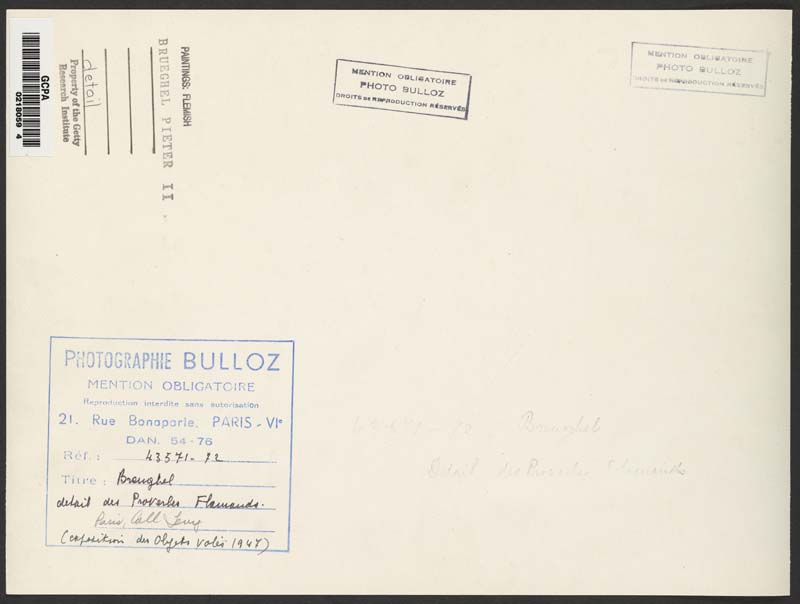 GCPA
0218059 4
Property of the Getty
Research Institute
detail
PAINTINGS: FLEMISH
BRUEGHEL PIETER II.
MENTION OBLIGATOIRE
PHOTO BULLOZ
DROITS DE REPRODUCTION RÉSERVÉS
MENTION OBLIGATOIRE
PHOTO BULLOZ
DROITS DE REPRODUCTION RÉSERVÉS
PHOTOGRAPHIE BULLOZ
MENTION OBLIGATOIRE
Reproduction interdite sans autorisation
21, Rue Bonaparte, PARIS-VIe
DAN. 54-76
Réf.: 43571-72
Titre: Breughel
detail des Proverbes Flamands.
Paris, Coll Levy
(exposition des Objets volés 1947)
Breughel
Detail des Proverbes Flamands